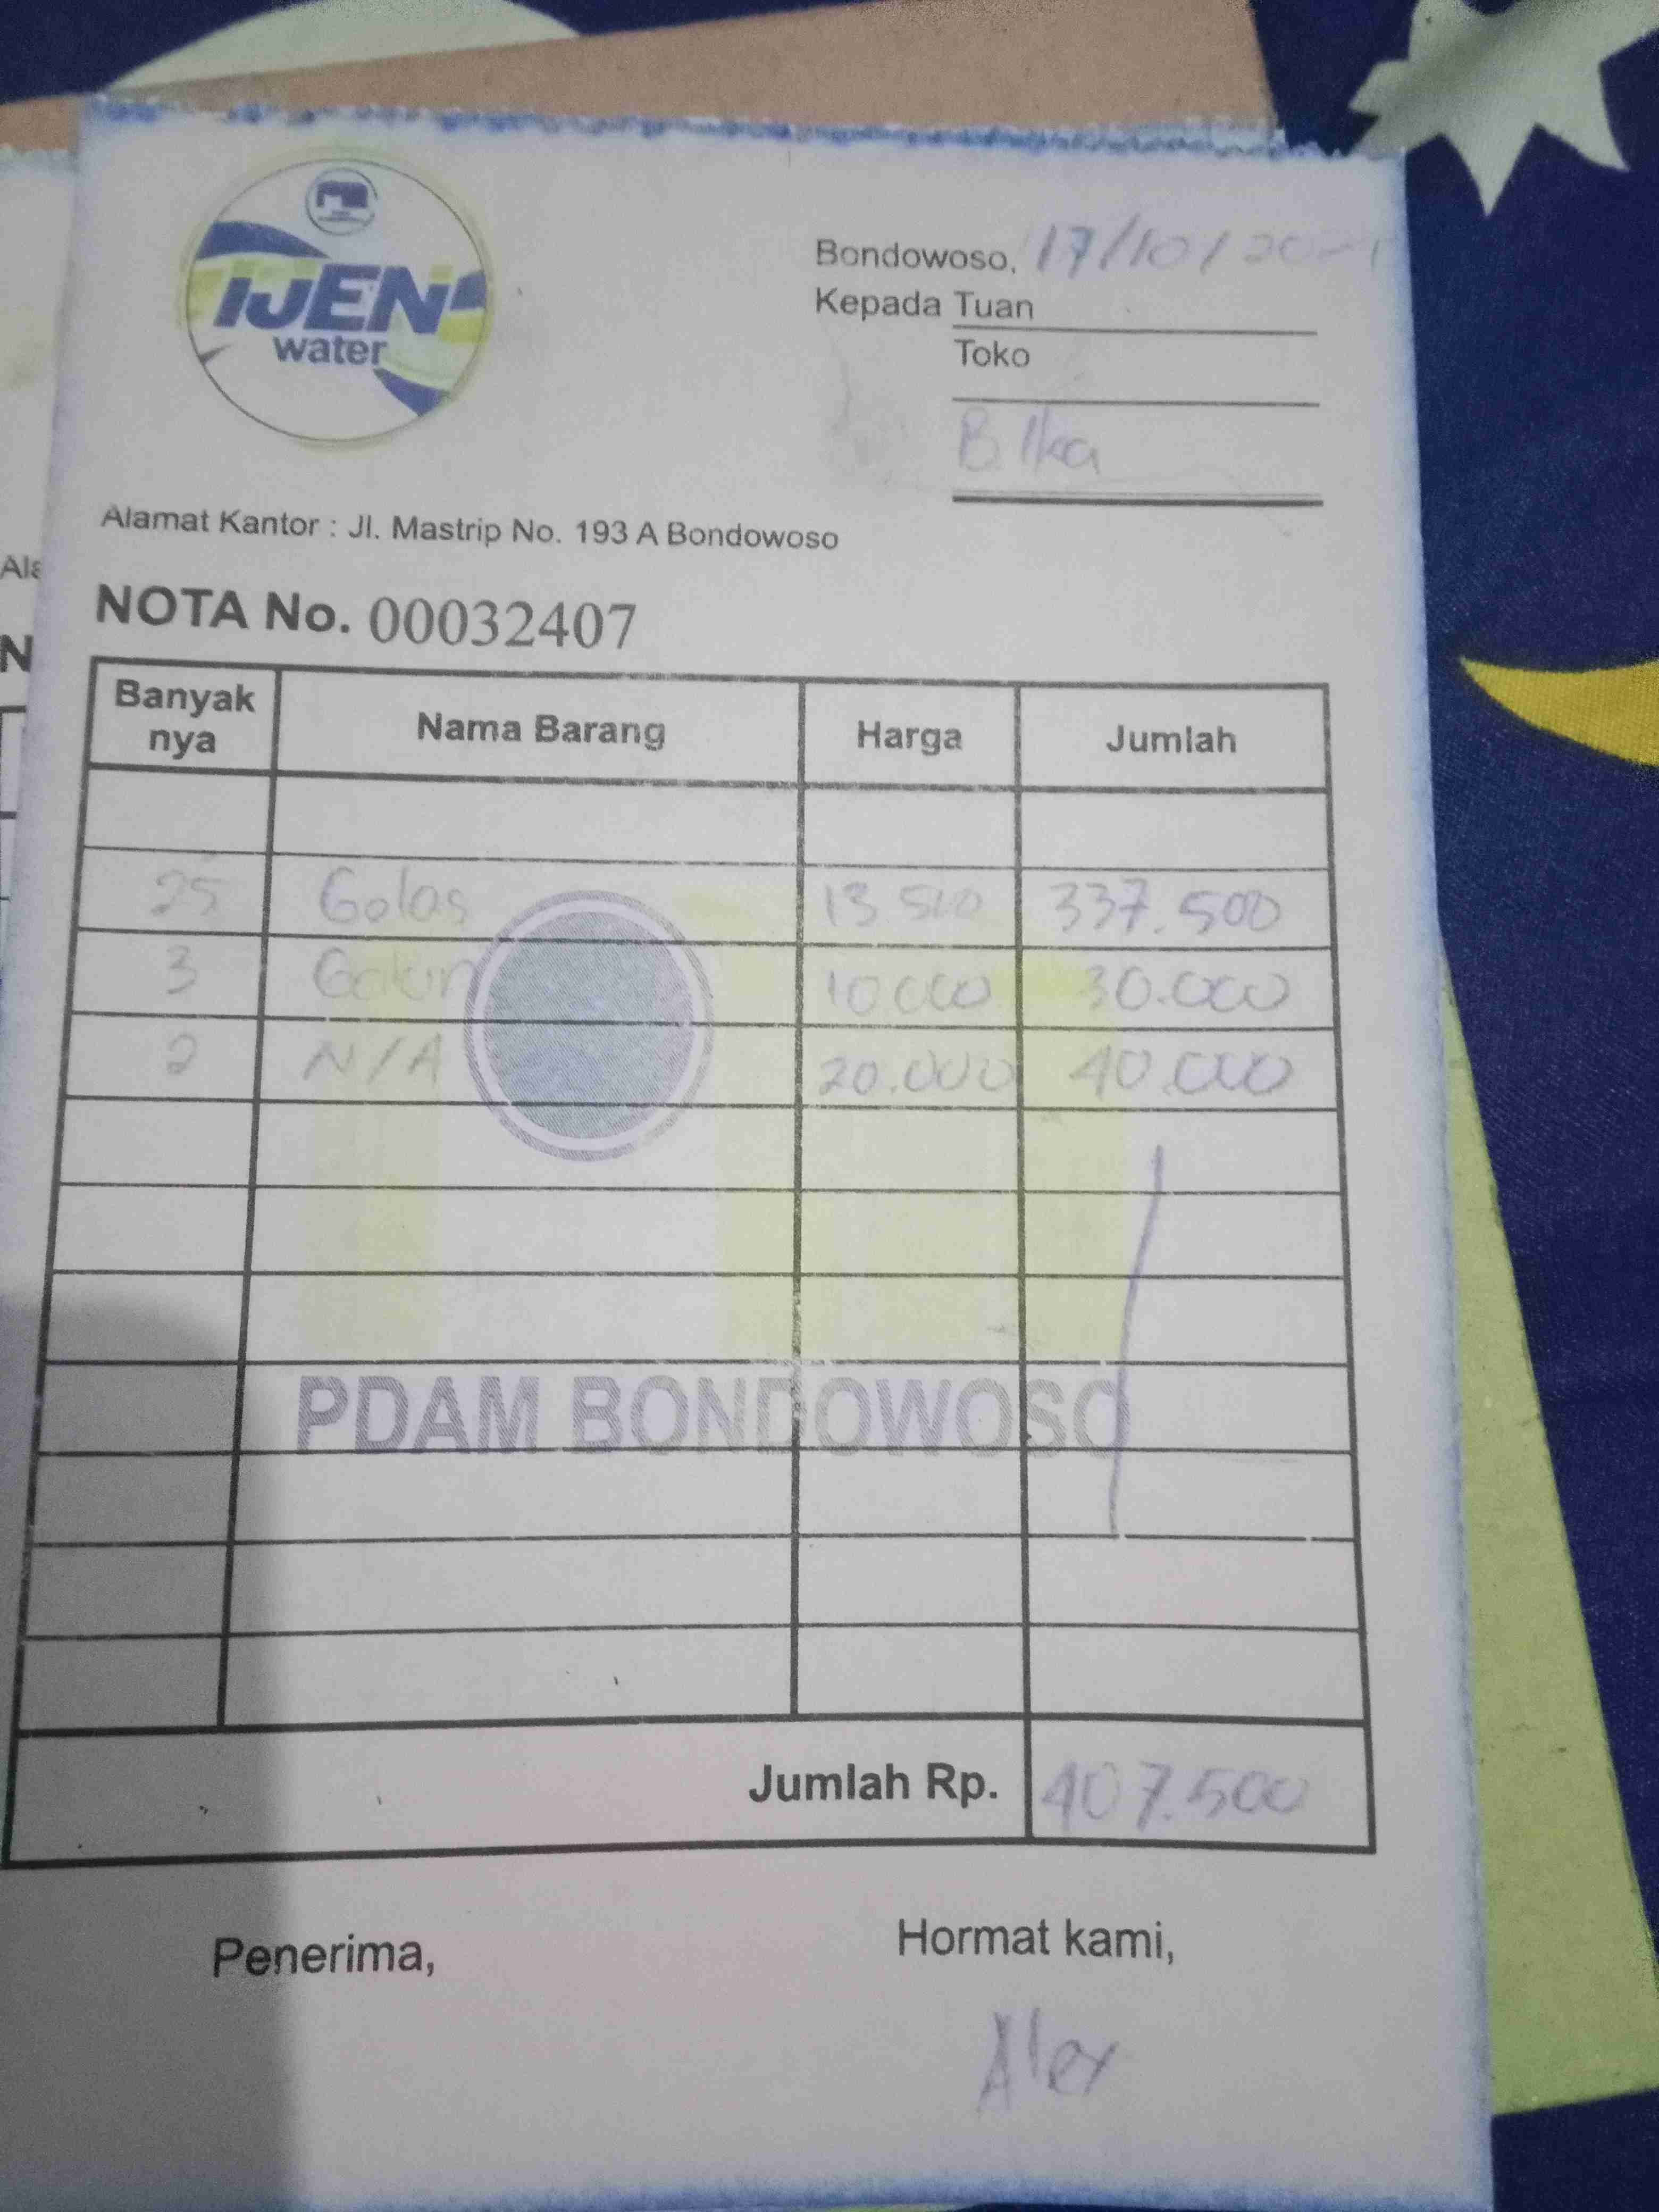 IJEN
water
Bondowoso, 17/10/
Kepada Tuan
Toko
B. Ika
Alamat Kantor : Jl. Mastrip No. 193 A Bondowoso
NOTA No. 00032407
Banyak nya Nama Barang Harga Jumlah
25 Gelas 13.500 337.500
3 Galon 10.000 30.000
2 N/A 20.000 40.000
PDAM BONDOWOSO
Jumlah Rp. 407.500
Penerima, Hormat kami,
Alex